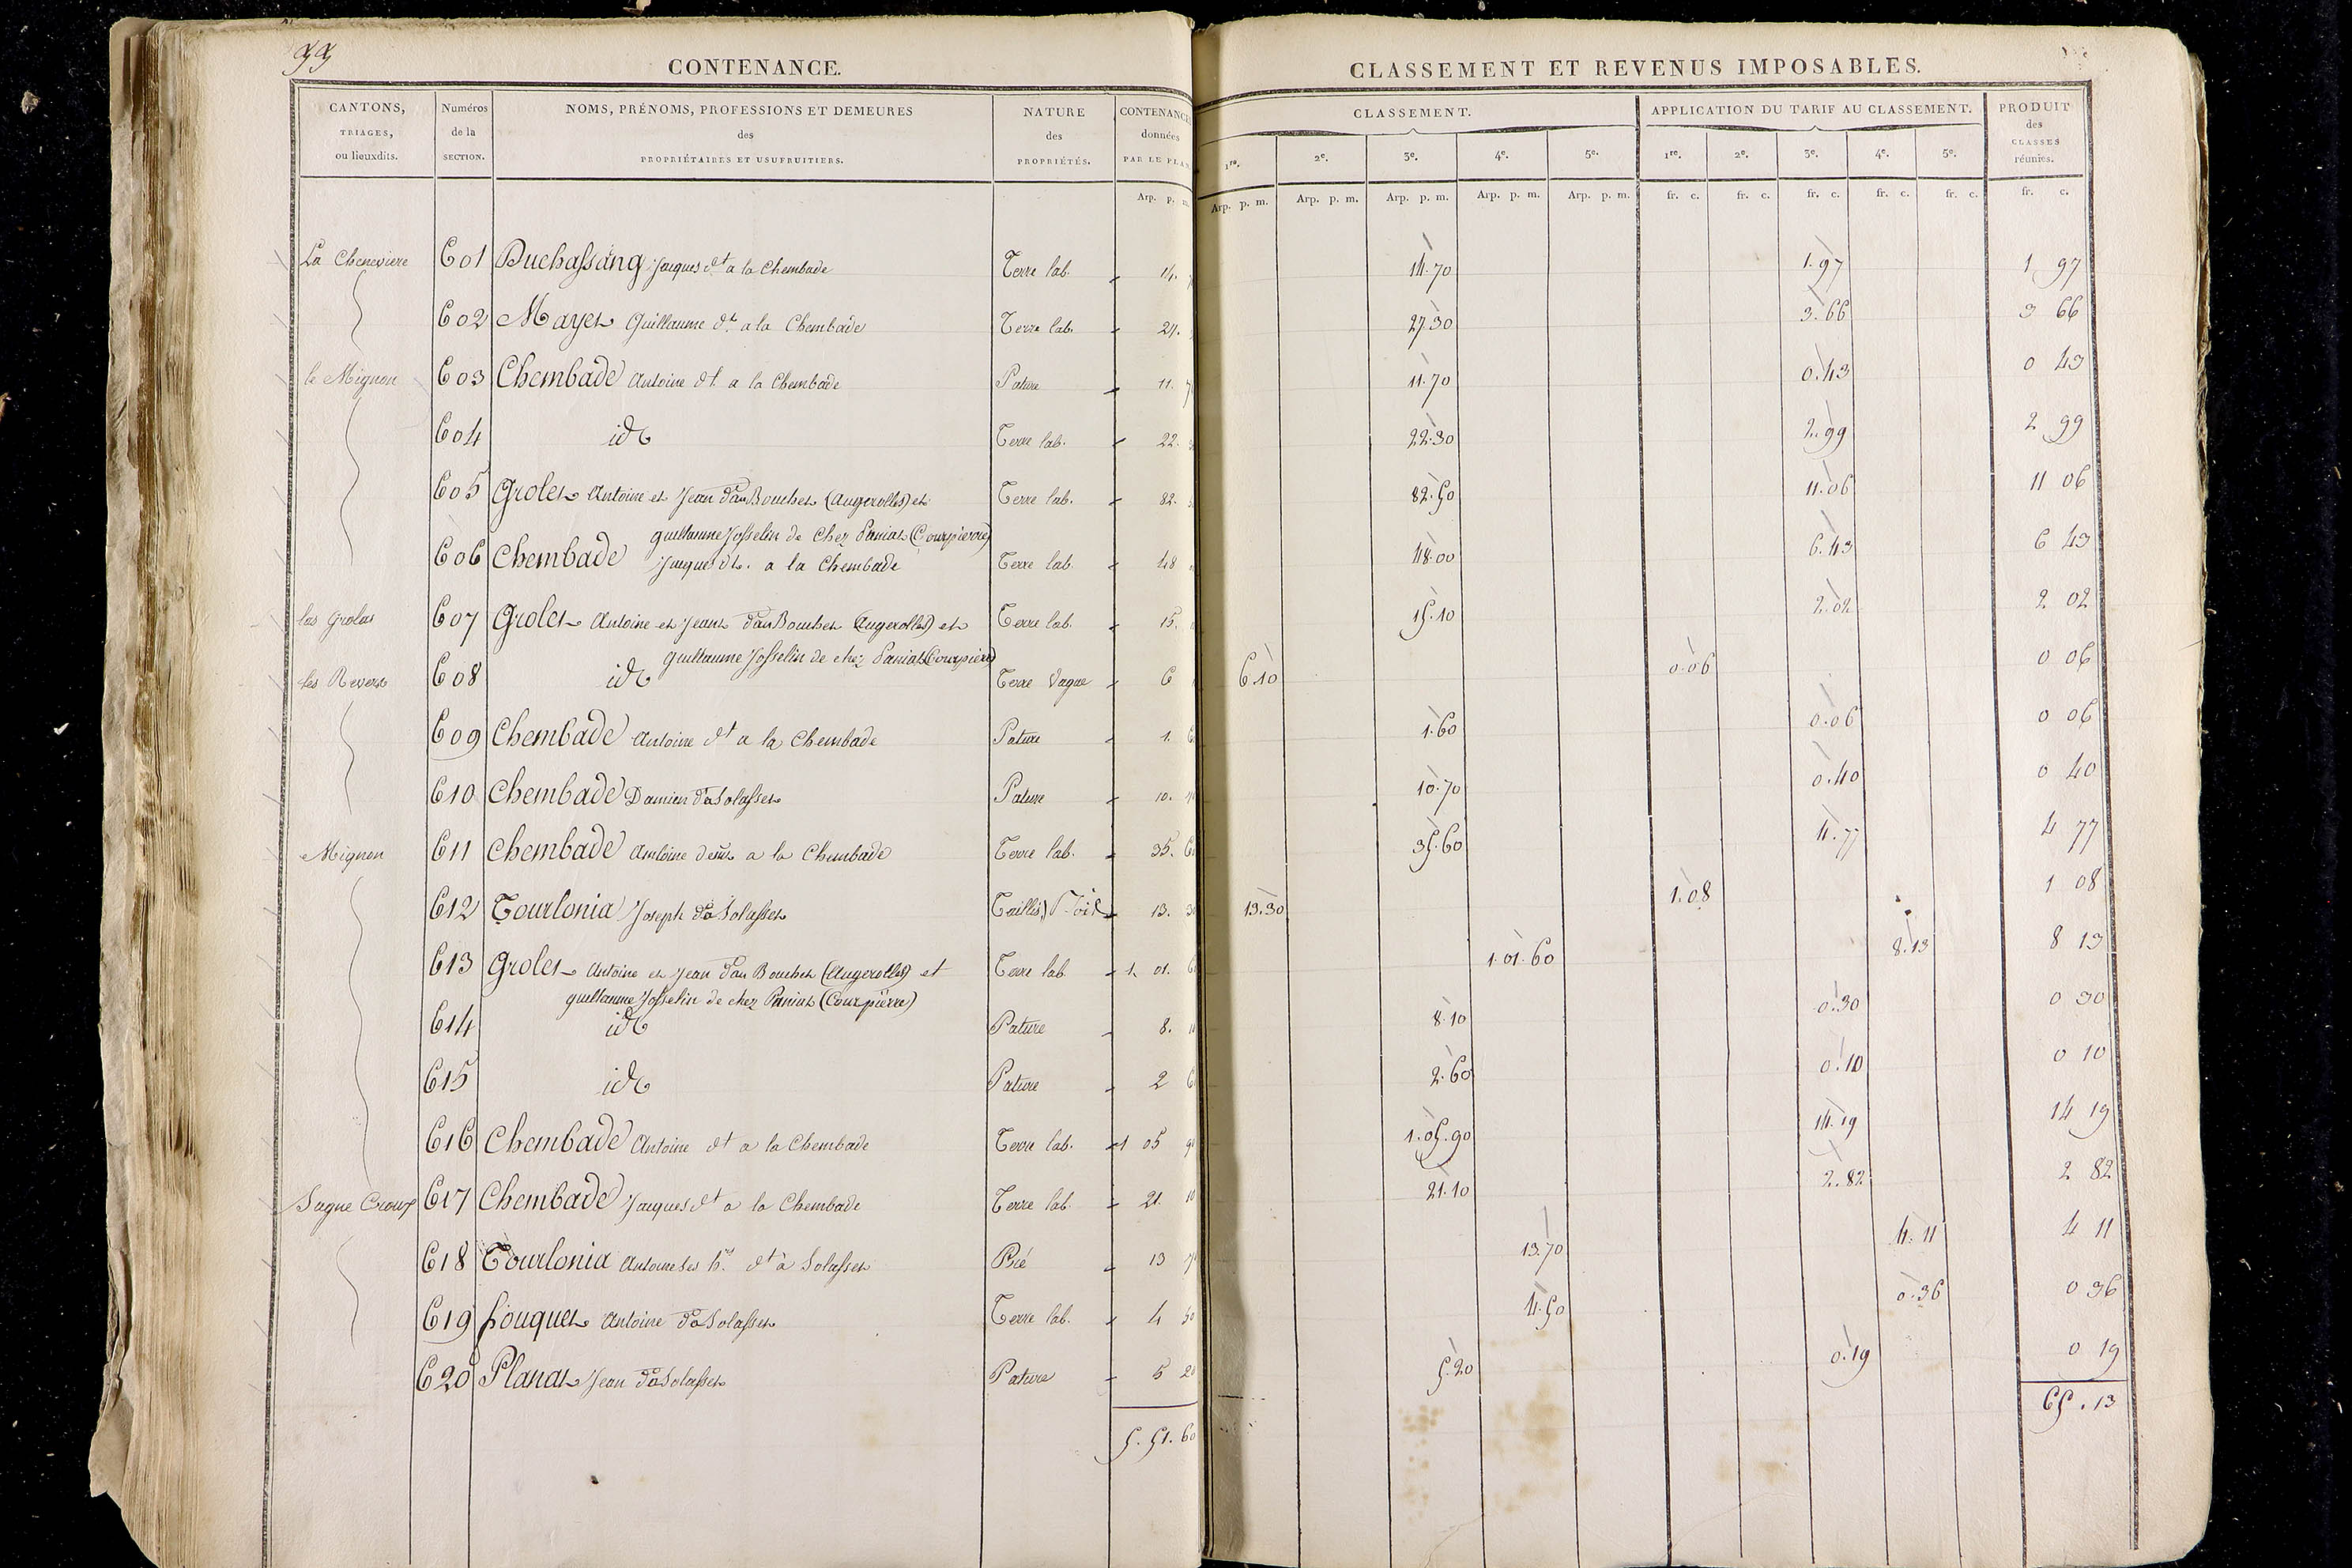 99
CONTENANCE.
CANTONS, TRIAGES, ou lieuxdits.
Numéros de la SECTION.
NOMS, PRÉNOMS, PROFESSIONS ET DEMEURES des PROPRIÉTAIRES ET USUFRUITIERS.
NATURE des PROPRIÉTÉS.
CONTENANCE données PAR LE PLAN
Arp. p. m.
CLASSEMENT ET REVENUS IMPOSABLES.
CLASSEMENT.
APPLICATION DU TARIF AU CLASSEMENT.
PRODUIT des CLASSES réunies.
1re. 2e. 3e. 4e. 5e. 1re. 2e. 3e. 4e. 5e.
Arp. p. m. Arp. p. m. Arp. p. m. Arp. p. m. Arp. p. m. fr. c. fr. c. fr. c. fr. c. fr. c. fr. c.
La Cheneviere 601 Duchassaing Jacques dt a la Chembade Terre lab. 14. 14.70 1.97 1 97
602 Mayet Guillaume dt a la Chembade Terre lab. 27. 27.30 3.66 3 66
le Mignon 603 Chembade Antoine dt a la Chembade Pature 11. 7 11.70 0.43 0 43
604 id Terre lab. 22. 22.30 2.99 2 99
605 Grolet Antoine et Jean d'au Bouchet (Augerolles) et Terre lab. 82. 82.50 11.06 11 06
guillaume Josselin de chez Paniat (Courpierre)
606 Chembade Jacque dt. a la Chembade Terre lab. 48 48.00 6.43 6 43
las Grolas 607 Grolet Antoine et Jean d'au Bouchet (Augerolles) et Terre lab. 15. 15.10 2.02 2 02
guillaume Josselin de chez Paniat (Courpierre)
les Revers 608 id Terre Vague 6 6.10 0.06 0 06
609 Chembade Antoine dt a la Chembade Pature 1. 6 1.60 0.06 0 06
610 Chembade Damien d'a Solasset Pature 10. 10.70 0.40 0 40
Mignon 611 Chembade Antoine a la Chembade Terre lab. 35. 6 35.60 4.77 4 77
612 Tourlonia Joseph d'a Solasset Taillis 13. 3 13.30 1.08 1 08
613 Grolet Antoine et Jean d'au Bouchet (Augerolles) et Terre lab 1. 01. 6 1.01.60 8.13 8 13
guillaume Josselin de chez Paniat (Courpierre)
614 id Pature 8. 1 8.10 0.30 0 30
615 id Pature 2 6 2.60 0.10 0 10
616 Chembade Antoine dt a la Chembade Terre lab. 1 05 90 1.05.90 14.19 14 19
Sagne Croux 617 Chembade Jacques dt a la Chembade Terre lab. 21. 10 21.10 2.82 2 82
618 Tourlonia Antoine ses hrs. dt à Solasset Pré 13 7 13.70 4.11 4 11
619 fouquet Antoine d'a Solasset Terre lab. 4 50 4.50 0.36 0 36
620 Planat Jean d'a Solasset Pature 5 20 5.20 0.19 0 19
5.51.60 65.13